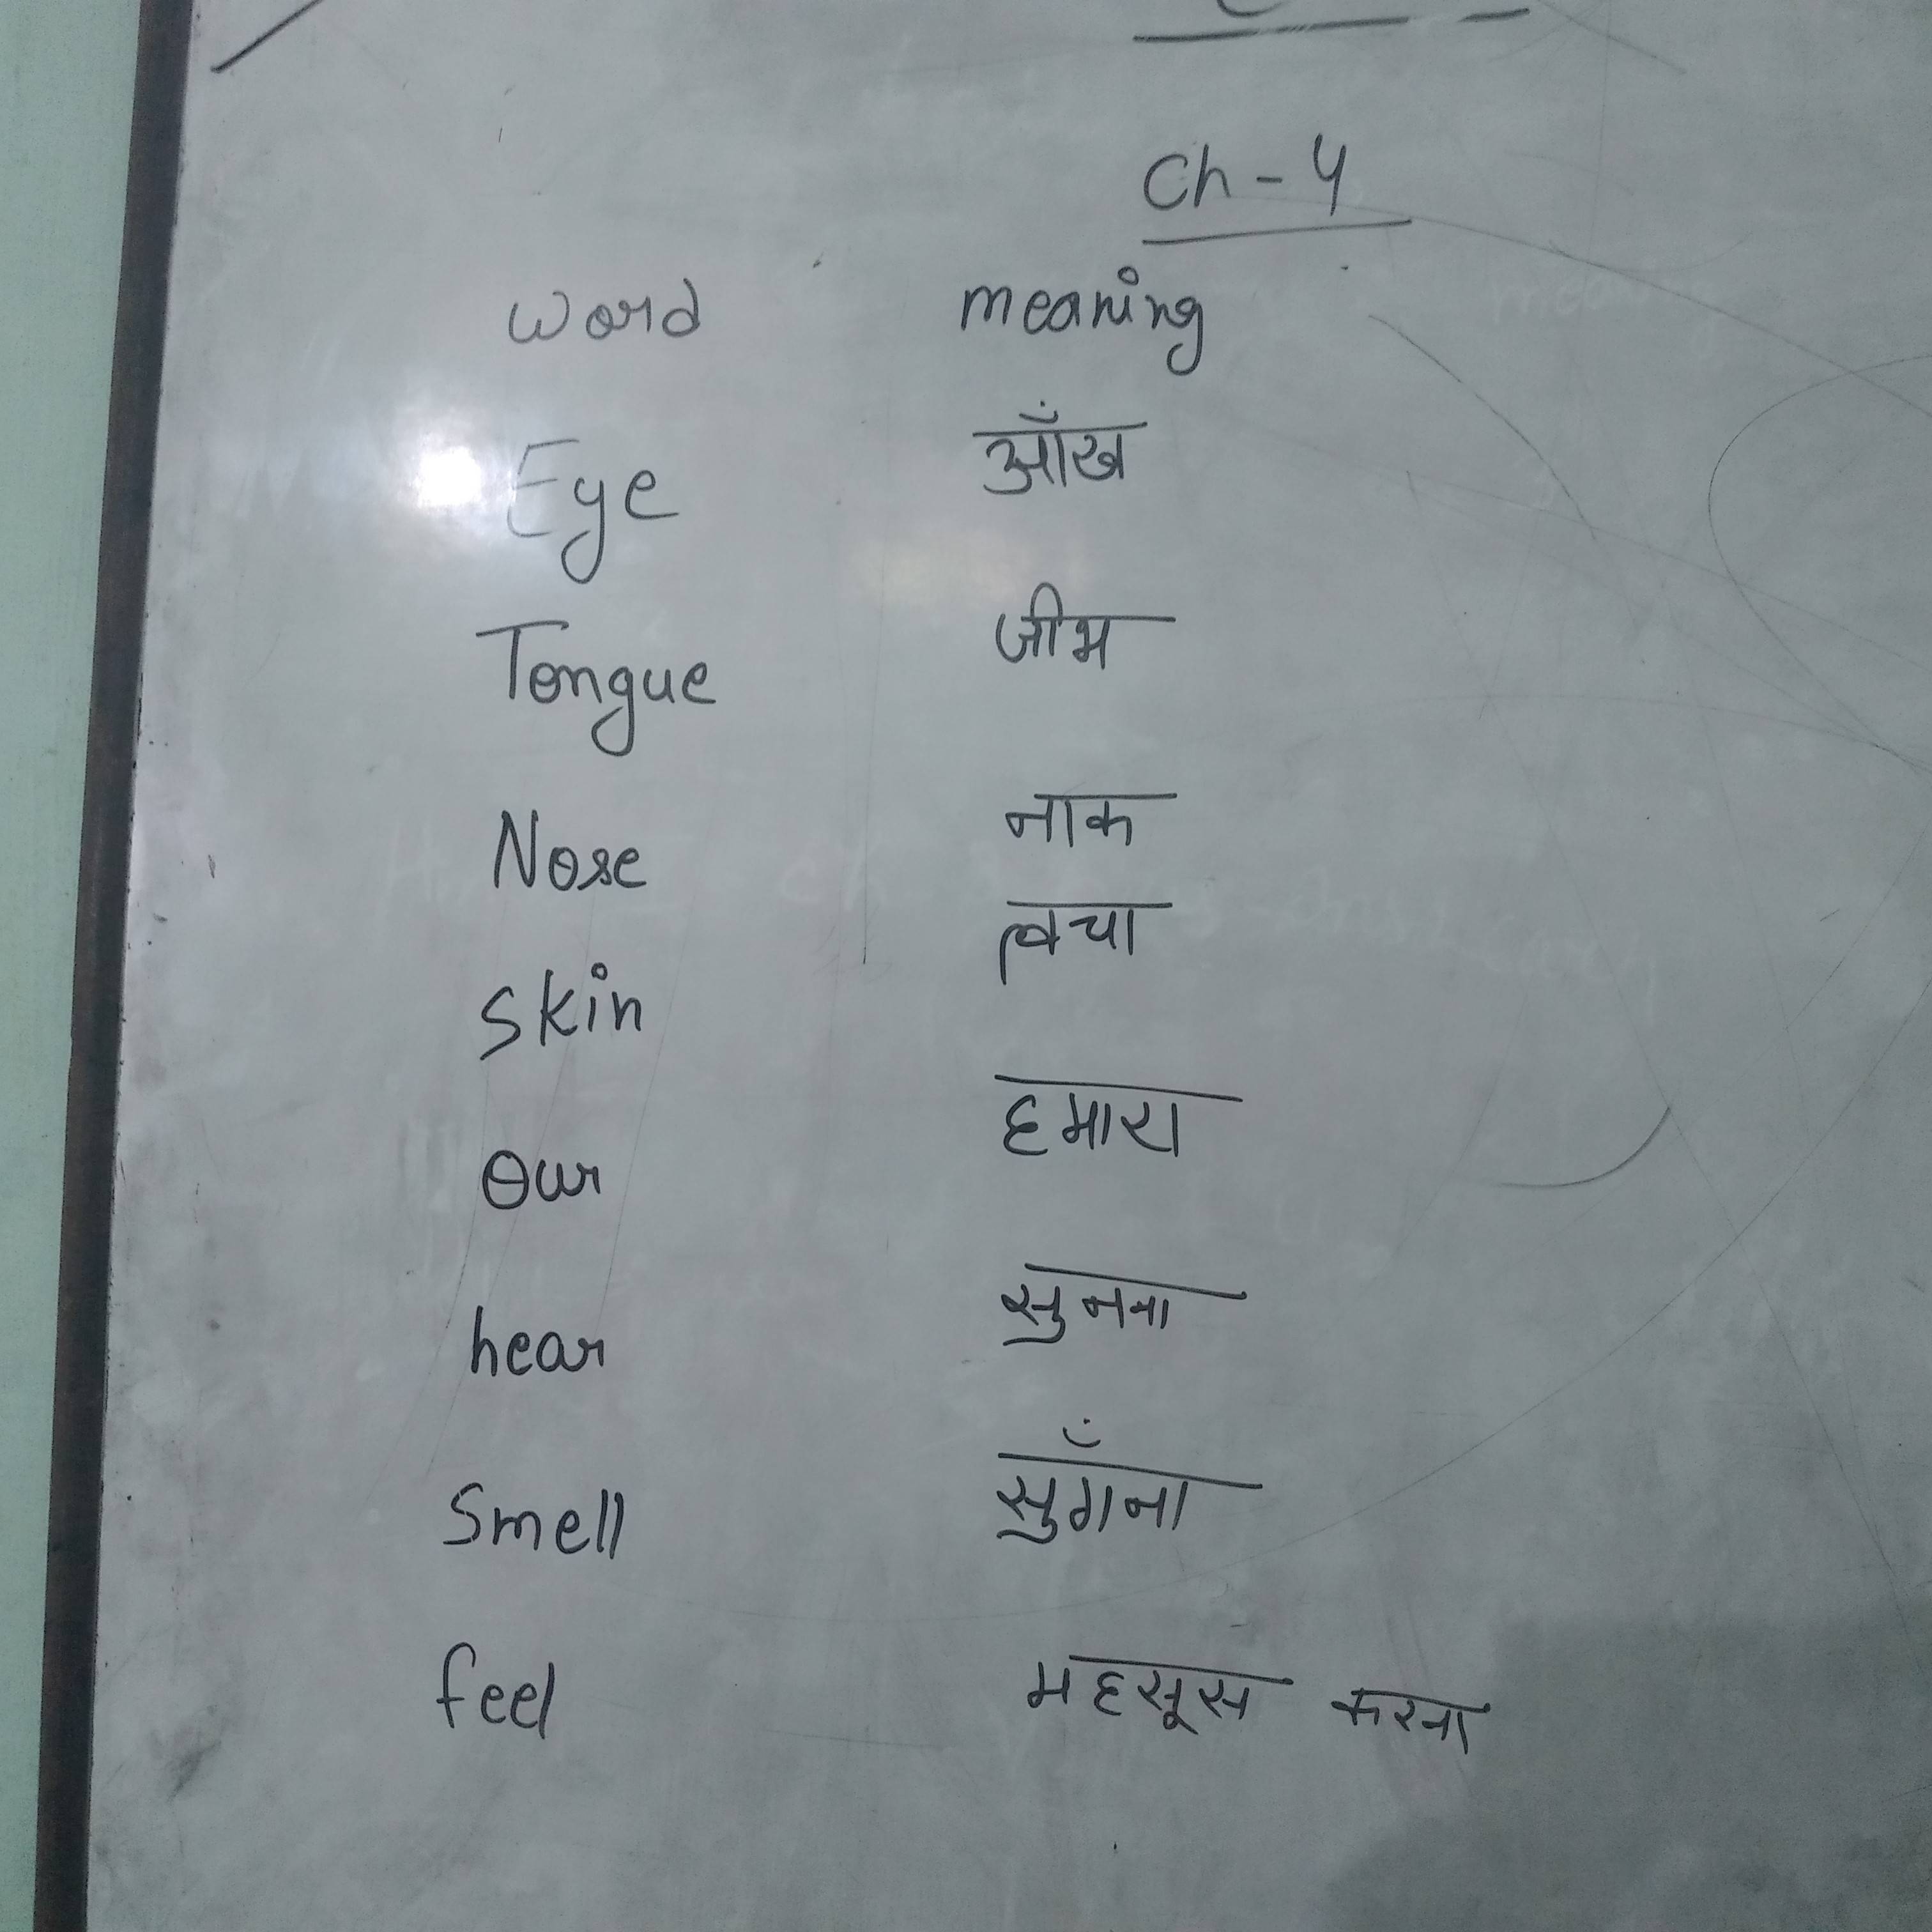 Ch - 4
word meaning
Eye आँख
Tongue जीभ
Nose नाक
Skin त्वचा
Our हमारा
hear सुनना
Smell सुगँना
feel महसूस करना